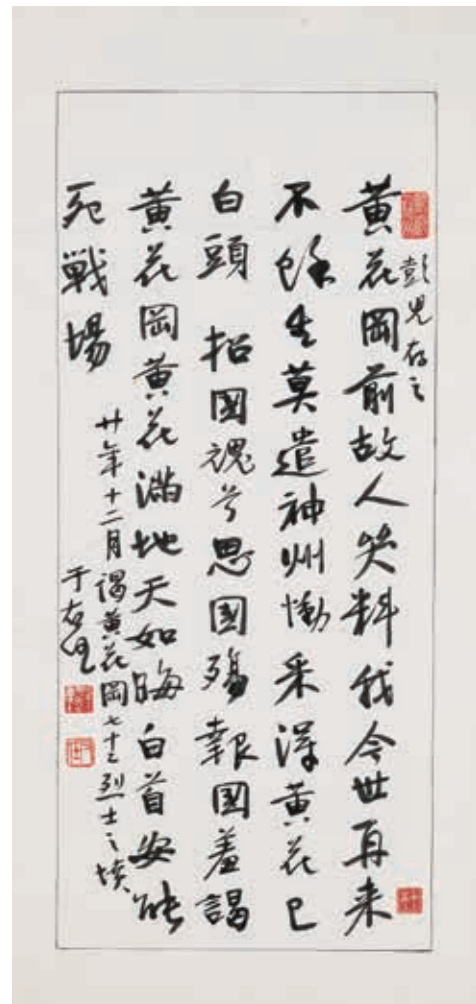 彭兒存之
黃花岡前故人笑料我今世再来
不餘生莫遣神州慟采得黃花已
白頭 招國魂兮思國殤報國羞謁
黃花岡黃花滿地天如晦白首安能
死戰場
廿年十二月謁黃花岡七十二烈士之墳
于右任